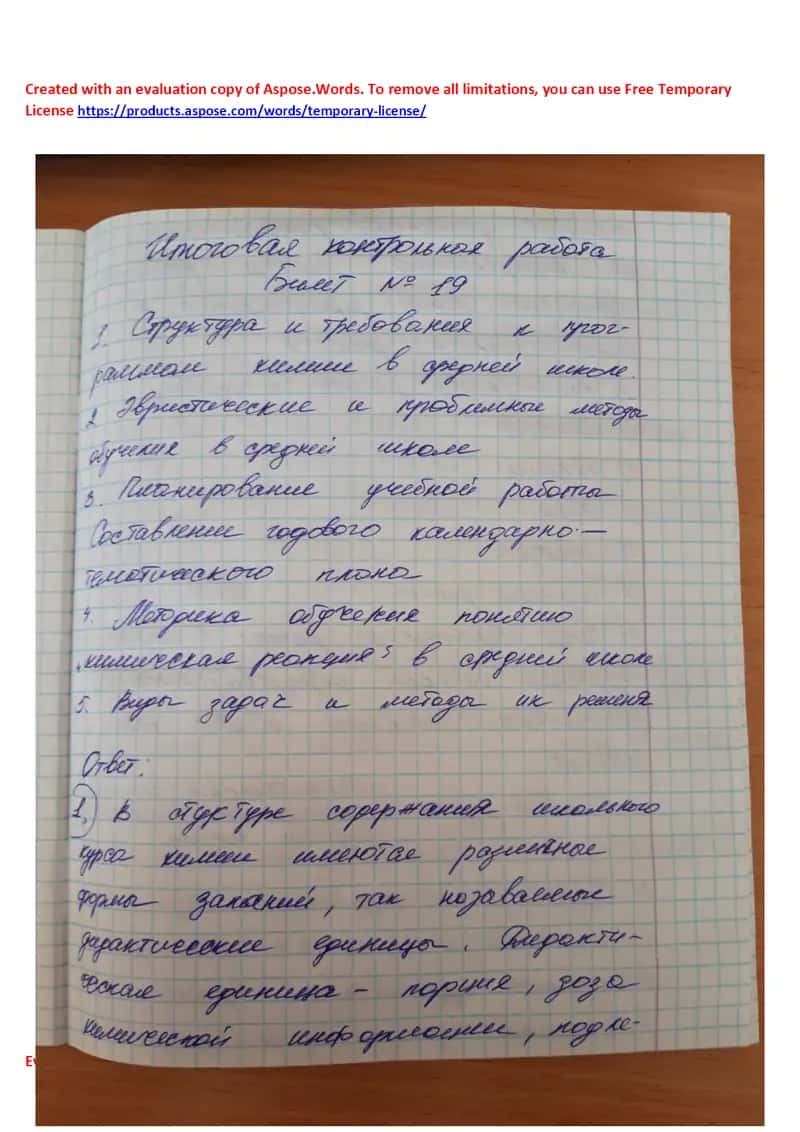 Created with an evaluation copy of Aspose.Words. To remove all limitations, you can use Free Temporary
License https://products.aspose.com/words/temporary-license/
Итоговая контрольная работа
Билет № 19
1. Структура и требования к прог-
раммам химии в средней школе.
2 Эвристические и проблемные методы
обучения в средней школе
3. Планирование учебной работы
Составлении годового календарно-
тематического плана
4. Методика обучения понятию
„химическая реакция" в средней школе
5. Виды задач и методы их решеня
Ответ:
1, В стуктуре содержания школьного
курса химии имеются различные
формы , так называемые
дидактические единицы. Дидакти-
ческая единица - порция, доза
химической информации, подле-